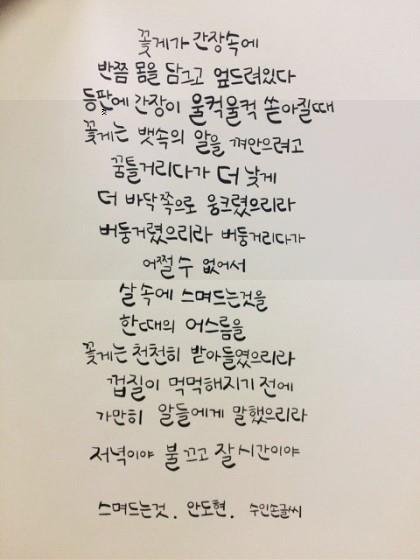 꽃게가 간장속에
반쯤 몸을 담그고 엎드려있다
등판에 간장이 울컥울컥 쏟아질때
꽃게는 뱃속의 알을 껴안으려고
꿈틀거리다가 더 낮게
더 바닥쪽으로 웅크렸으리라
버둥거렸으리라 버둥거리다가
어쩔 수 없어서
살 속에 스며드는것을
한때의 어스름을
꽃게는 천천히 받아들였으리라
껍질이 먹먹해지기 전에
가만히 알들에게 말했으리라
저녁이야 불 끄고 잘 시간이야
스며드는것. 안도현. 수인손글씨